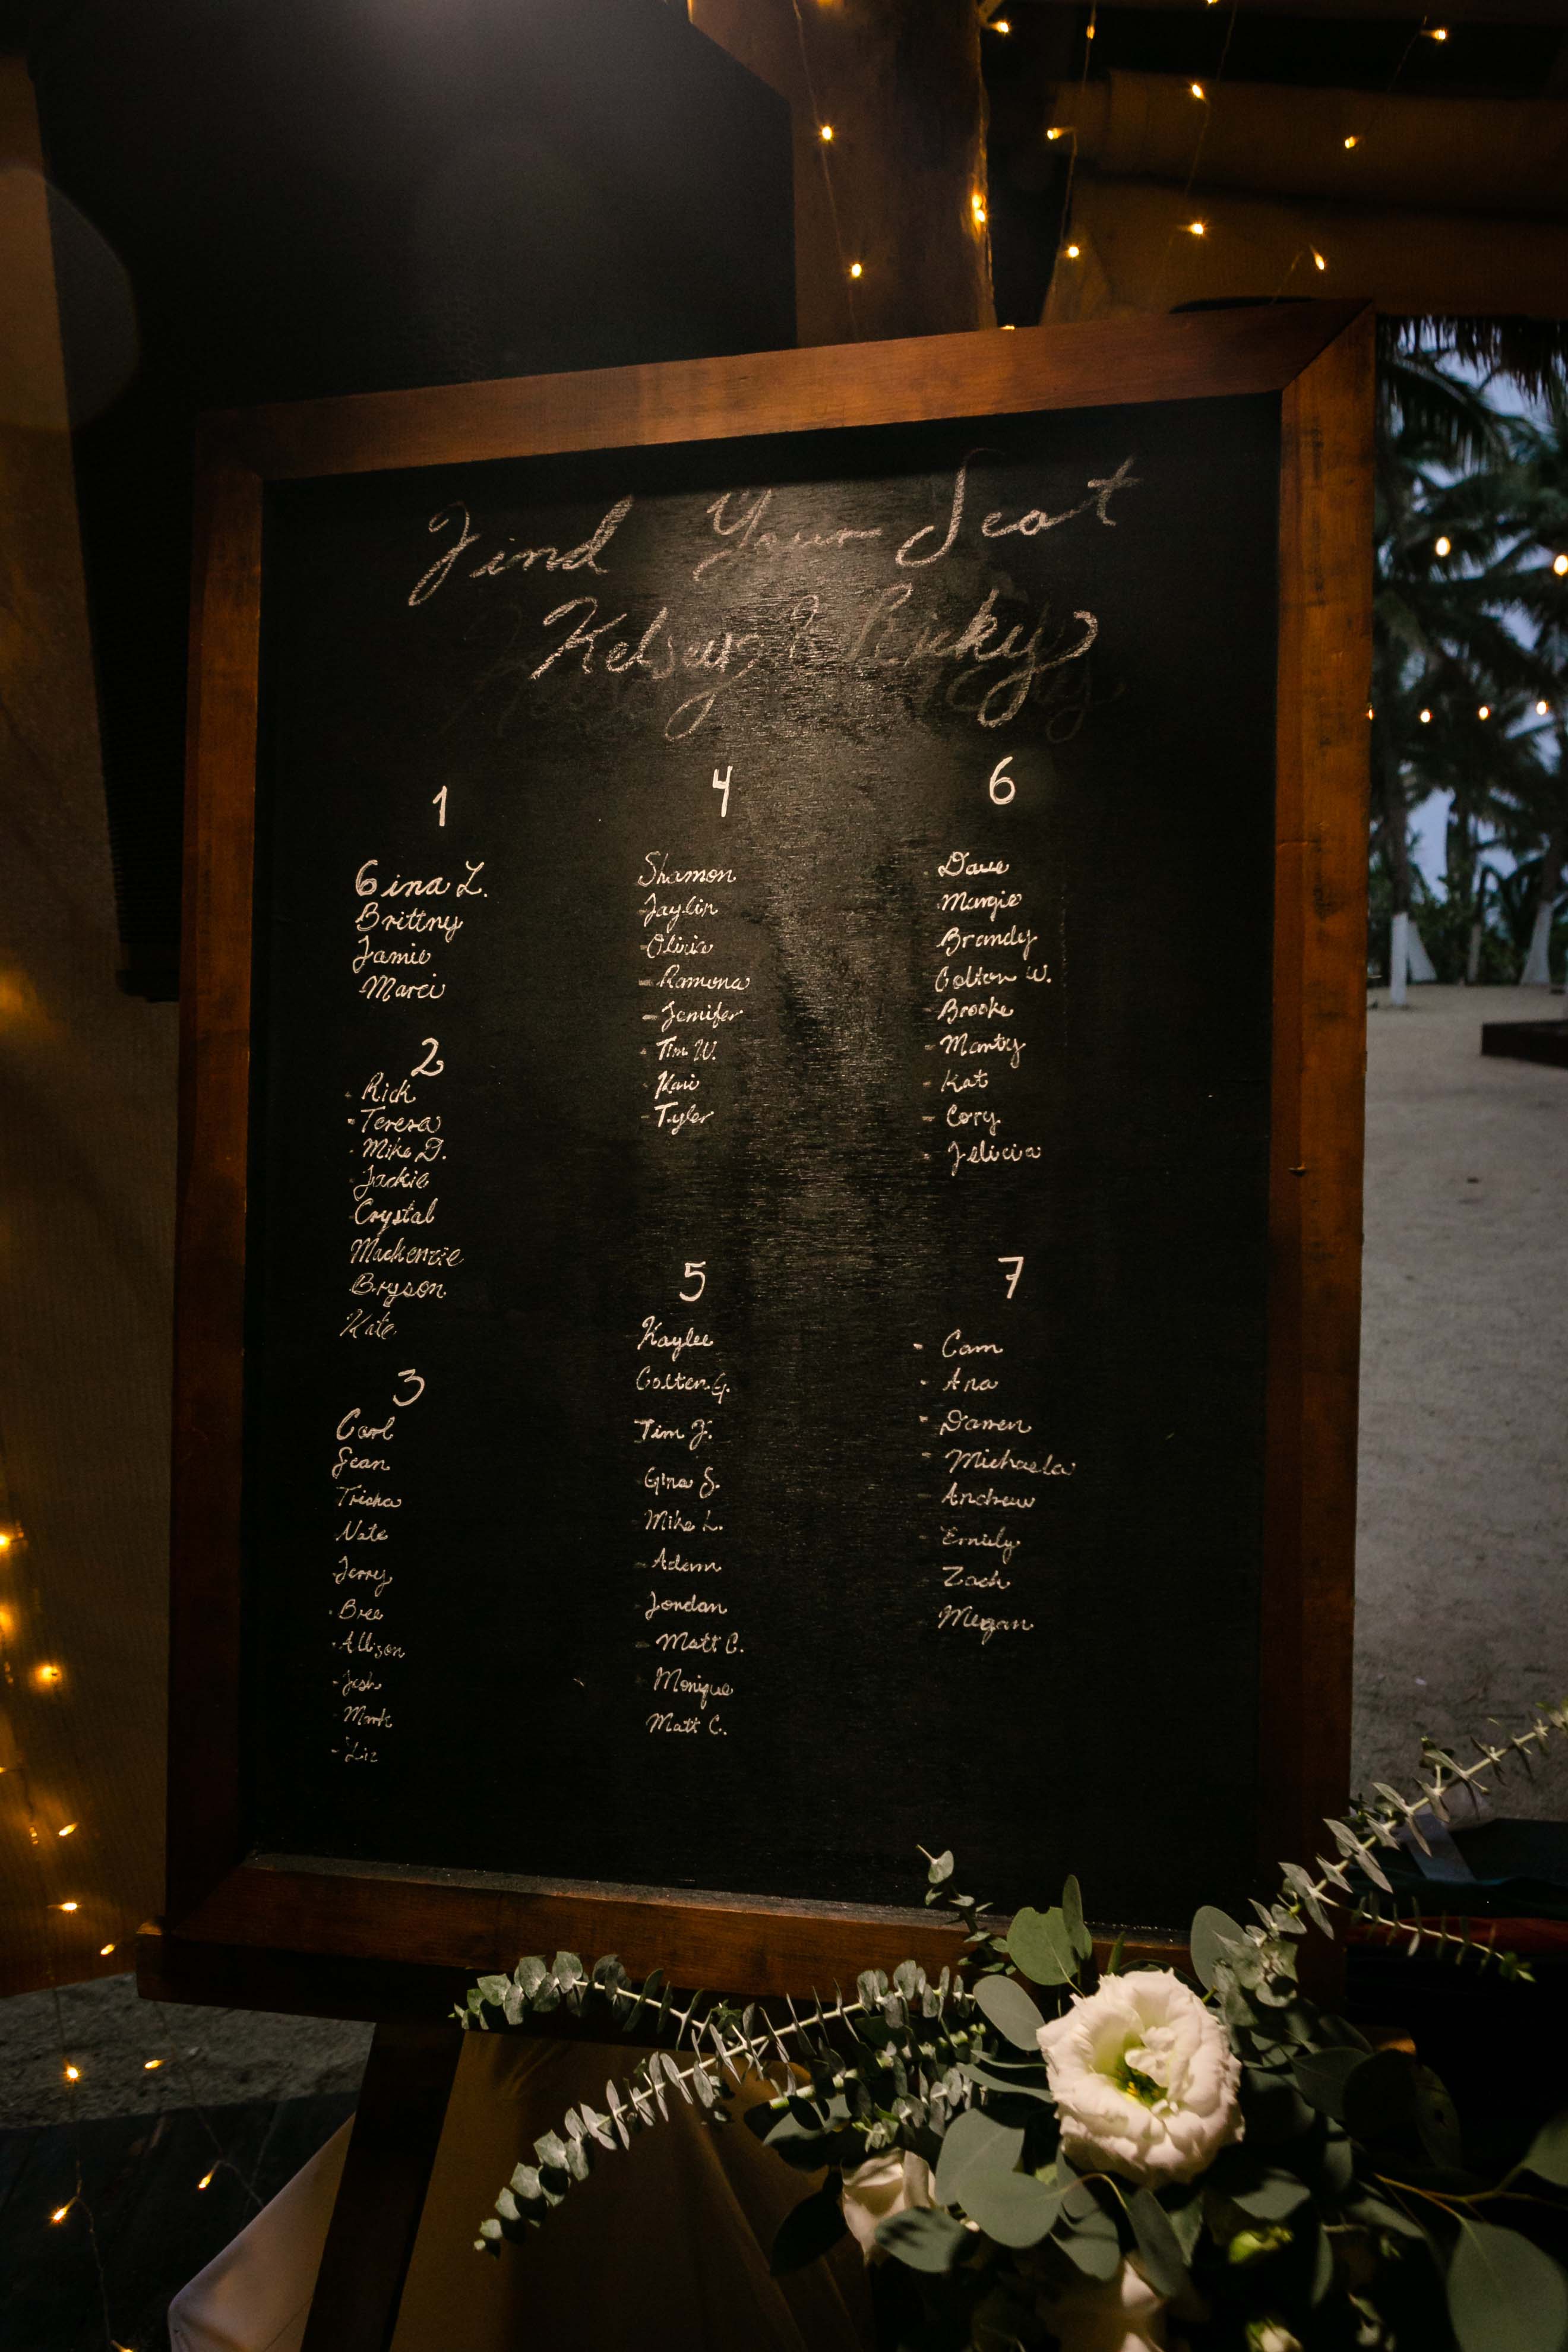 Find Your Seat
Kelsey & Ricky
1
Gina L.
Brittny
Jamie
Marci
2
- Rick
- Teresa
- Mike D.
- Jackie
Crystal
Mackenzie
Bryson
Kate
3
Carl
Jean
Trisha
Nate
Jerry
- Bree
- Allison
- Josh
- Mark
- Liz
4
Shamon
Jaylin
- Olivia
- Ramona
- Jennifer
- Tim W.
- Kari
- Tyler
5
Kaylee
Colten G.
Tim J.
Gina S.
Mike L.
- Adam
Jordan
- Matt C.
Monique
Matt C.
6
- Dave
Margie
Brandy
Colton W.
- Brooke
- Marty
- Kat
- Cory
- Felicia
7
- Cam
- Ana
- Darren
- Michaela
Andrew
- Emily
Zach
Megan